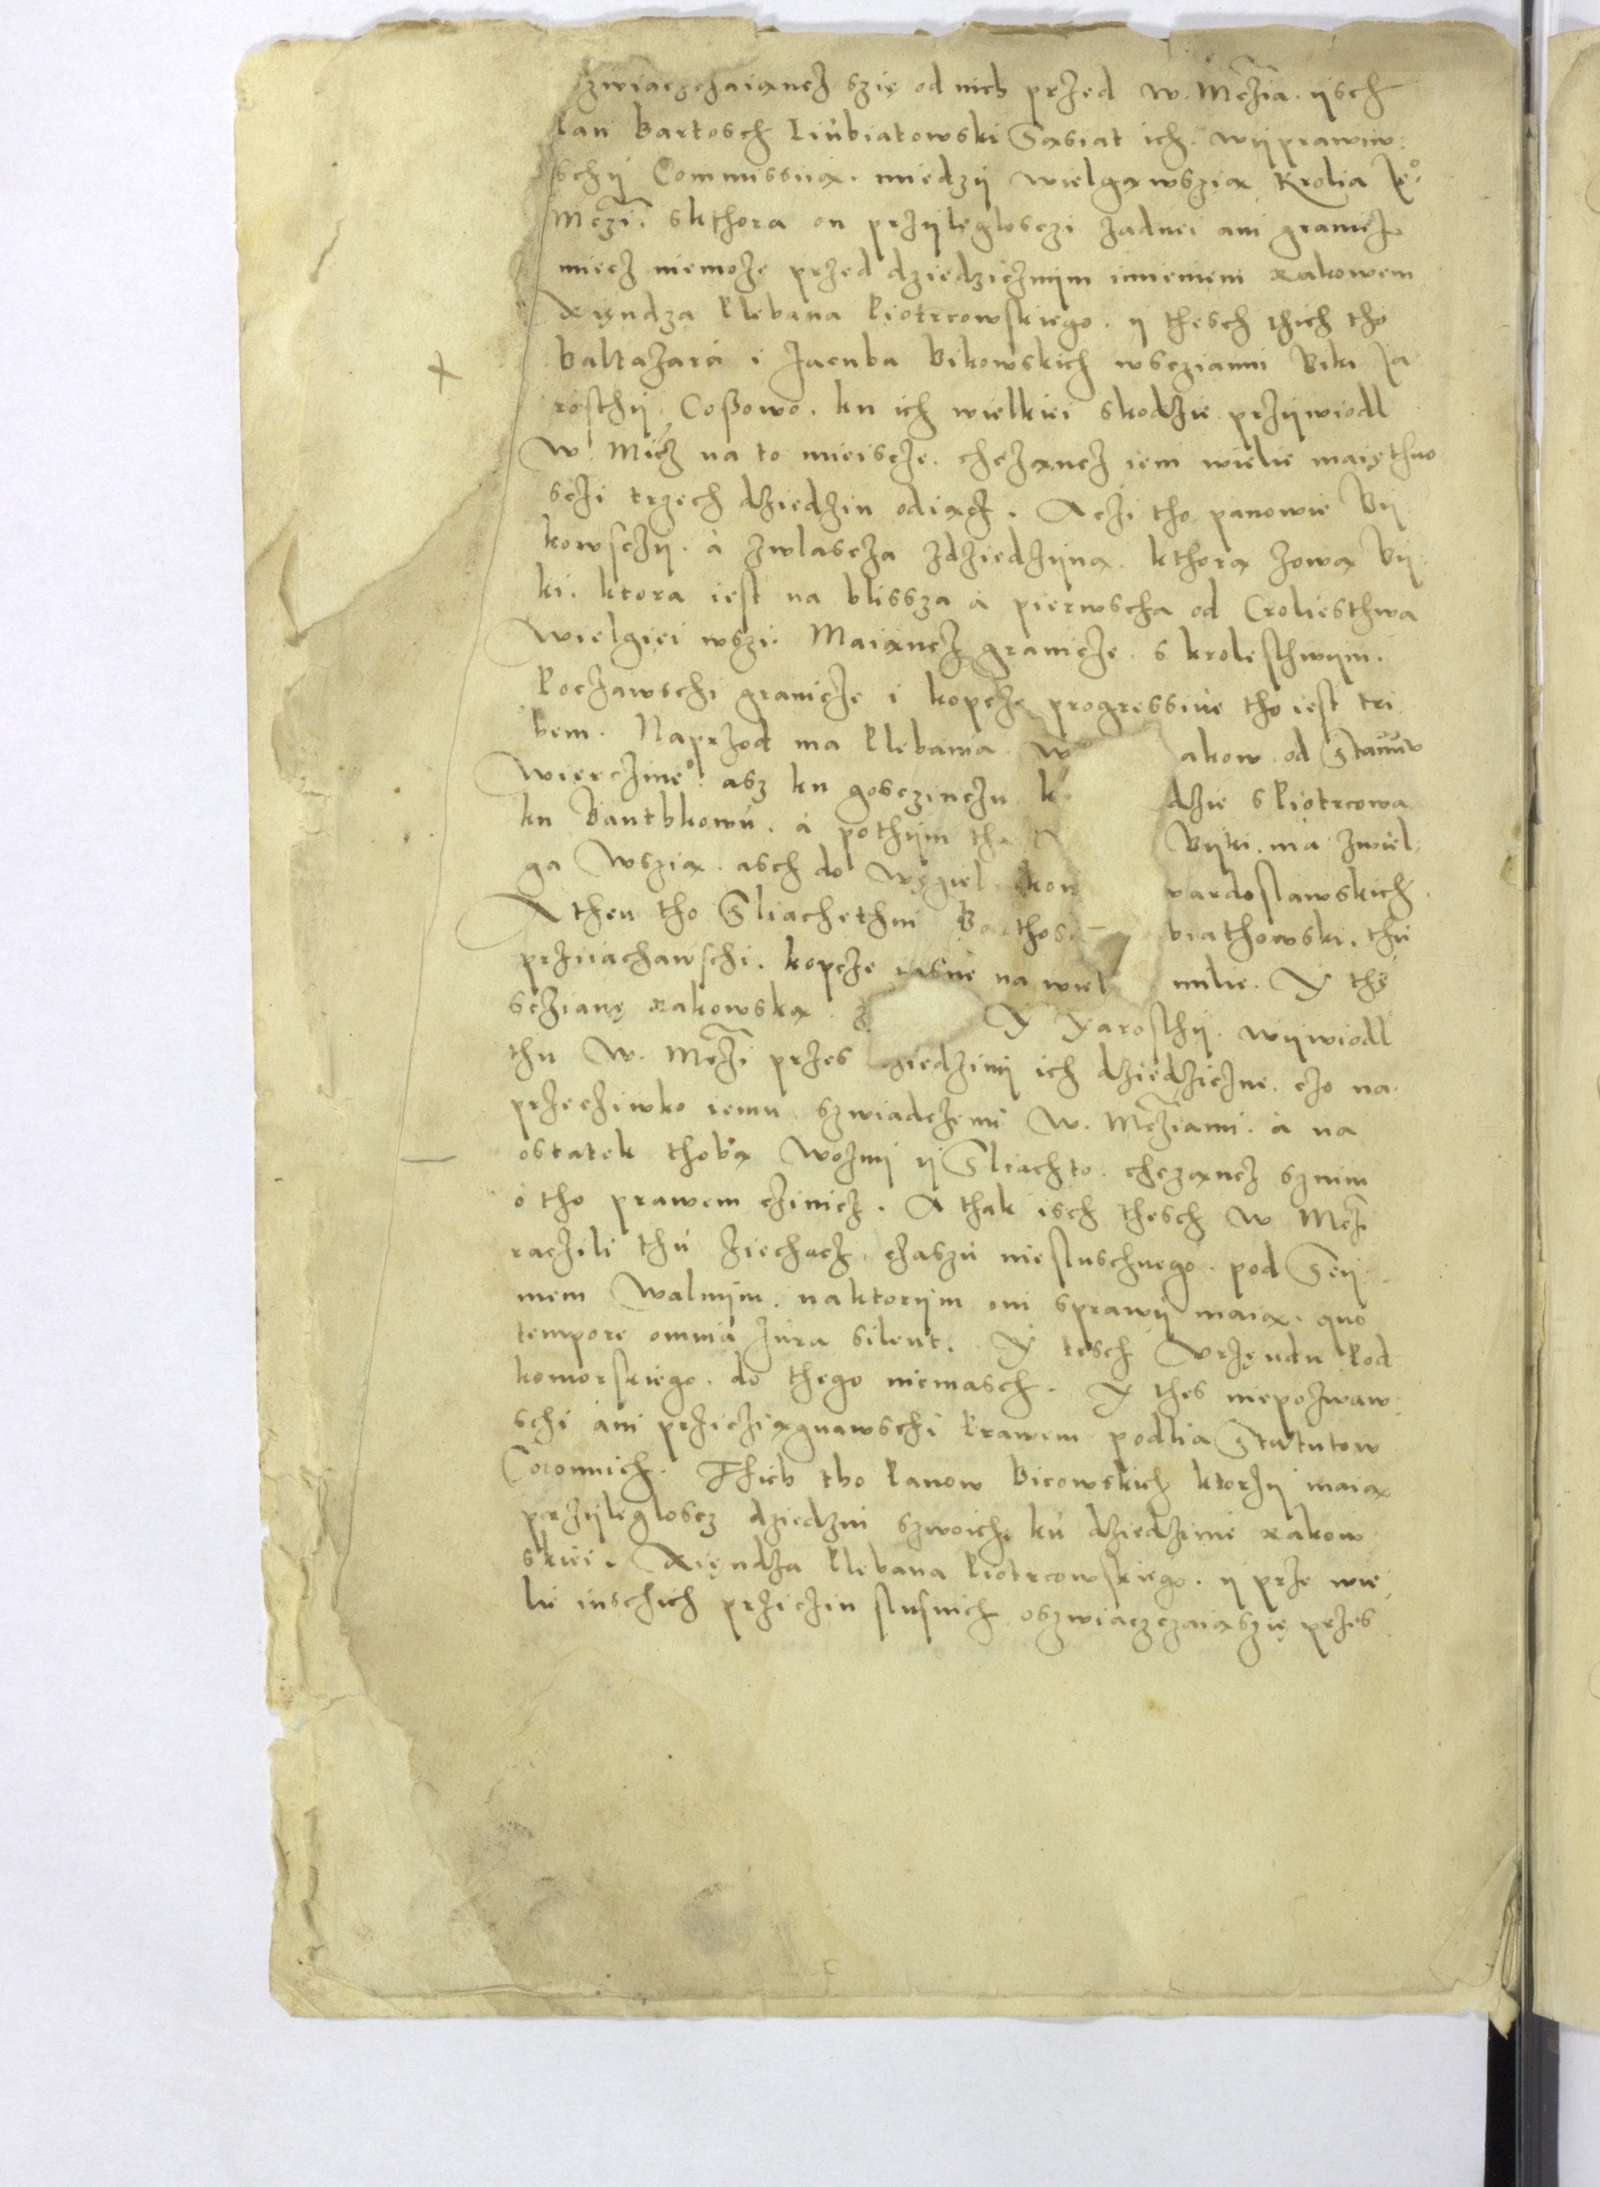 zwiaczczaiąncz szię od nich przed W. Mczią. ysch
Pan Bartosch Liubiatowski Sąsiat ich. wyprawiw
schy Commissiią. miedzy wielgą wszią Krolia Je°
Mczi. skthora on przyległosczi zadnei ani granicz
miecz niemoże przed dziedzicznym imieniem Rakowem
Xiędza Plebana Piotrcowskiego. y thesch thich tho
Baltazara i Jacuba Bikowskich wscziami Biki Ja
rosthy Coßowo. ku ich wielkiei skodzie przywiodl
W. Mcz na to mieiscze. chcząncz iem wielie maięthno
sczi trzech dziedzin odiącz. Aczi tho panowie By
kowsczy. a zwlascza zdziedzyną. kthorą zową By
ki. ktora iest na blissza a pierwscha od Croliesthwa
Wielgiei wszi. Maiąncz granicze. s krolesthwym.
Poczawschi granicze i kopcze progressiue tho iest tri
bem. Naprzod ma Plebania W akow. od Stawu
Wierczine° asz ku gosczinczu k dzie s Piotrcowa
ku Bantkowu. a pothym tha Byki. ma zwiel
gą Wszią. asch do Węgiel kow vardoslawskich.
A then tho Sliachethni Barthos biathowski. thu
prziiachawschi. kopcze iasne na wiel milie. Y thę
sczianę Rakowską. Y Yarosthy. wywiodl
thu W. Mczi przes dziedzini ich dziedziczne. czo na
przecziwko iemu szwiadczemi W. Mcziami. a na
ostatek thobą Wozni y Sliachto. chcząncz sznim
o tho prawem czinicz. A thak isch thesch W Mcz
raczili thu ziechacz czaszu niesluschnego. pod Sey
mem Walnym. naktorym oni sprawy maią. quo
tempore omnia Jura silent. Y tesch Vrzędu Pod
komorskiego. do thego niemasch. Y thes niepozwaw
schi ani prziciziągnawschi Prawem podlia Statutow
Coronnich. Thich tho Panow Bicowskich ktorzy maią
przylegloscz dziedzin szwoich ku dziedzinie Rakow
skiei. Xiędza Plebana Piotrcowskiego. y prze wie
lu inschich prziczin slusnich oszwiaczczaią szię przes